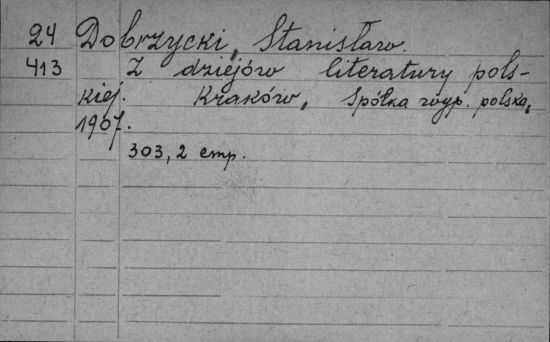 24 Dobrzycki, Stanisław.
413 Z dziejów literatury pols-
kiej. Kraków, Spółka wyp. polska,
1907.
303, 2 стр.